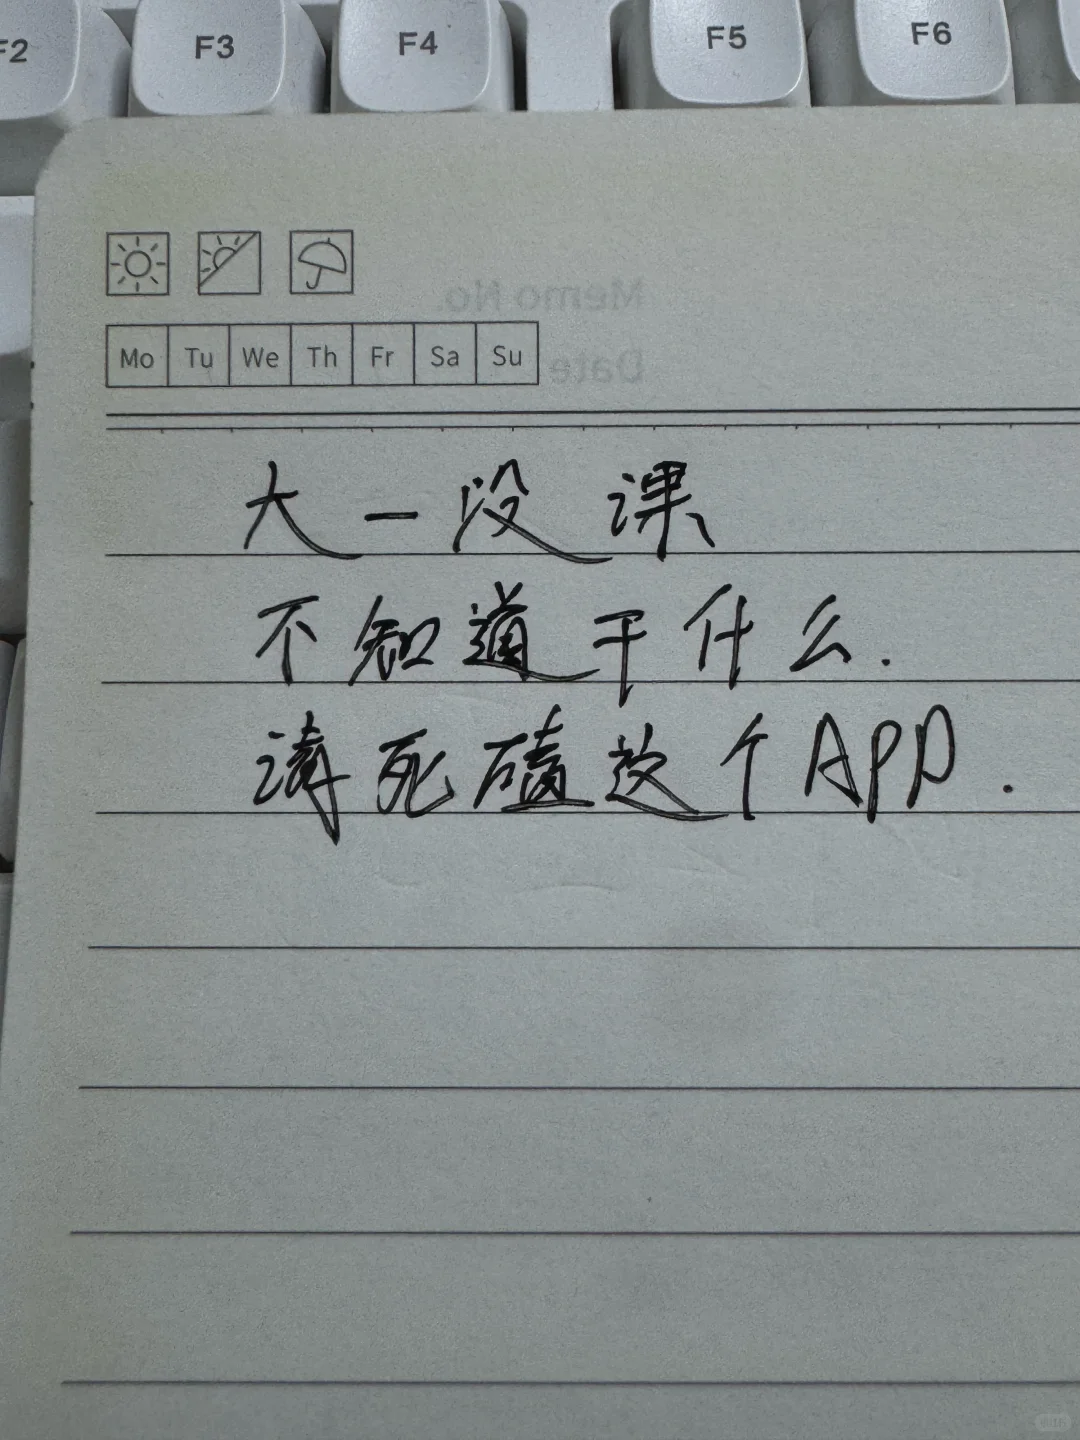 F2 F3 F4 F5 F6
Memo No.
Mo Tu We Th Fr Sa Su
Date
大一没课
不知道干什么.
请死磕这个APP.